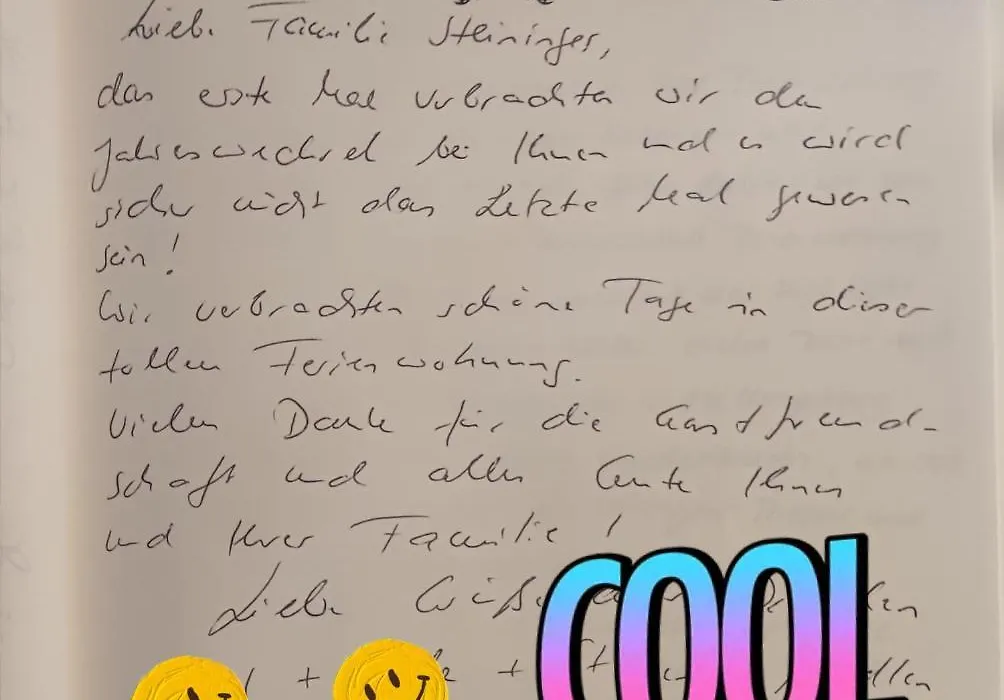 Liebe Familie Steininger,
das erste Mal verbrachten wir den
Jahreswechsel bei Ihnen und es wird
sicher nicht das Letzte Mal gewesen
sein!
Wir verbrachten schöne Tage in dieser
tollen Ferienwohnung.
Vielen Dank für die Gastfreund-
schaft und alles Gute Ihnen
und Ihrer Familie!
Liebe Grüße
+ +
COOL